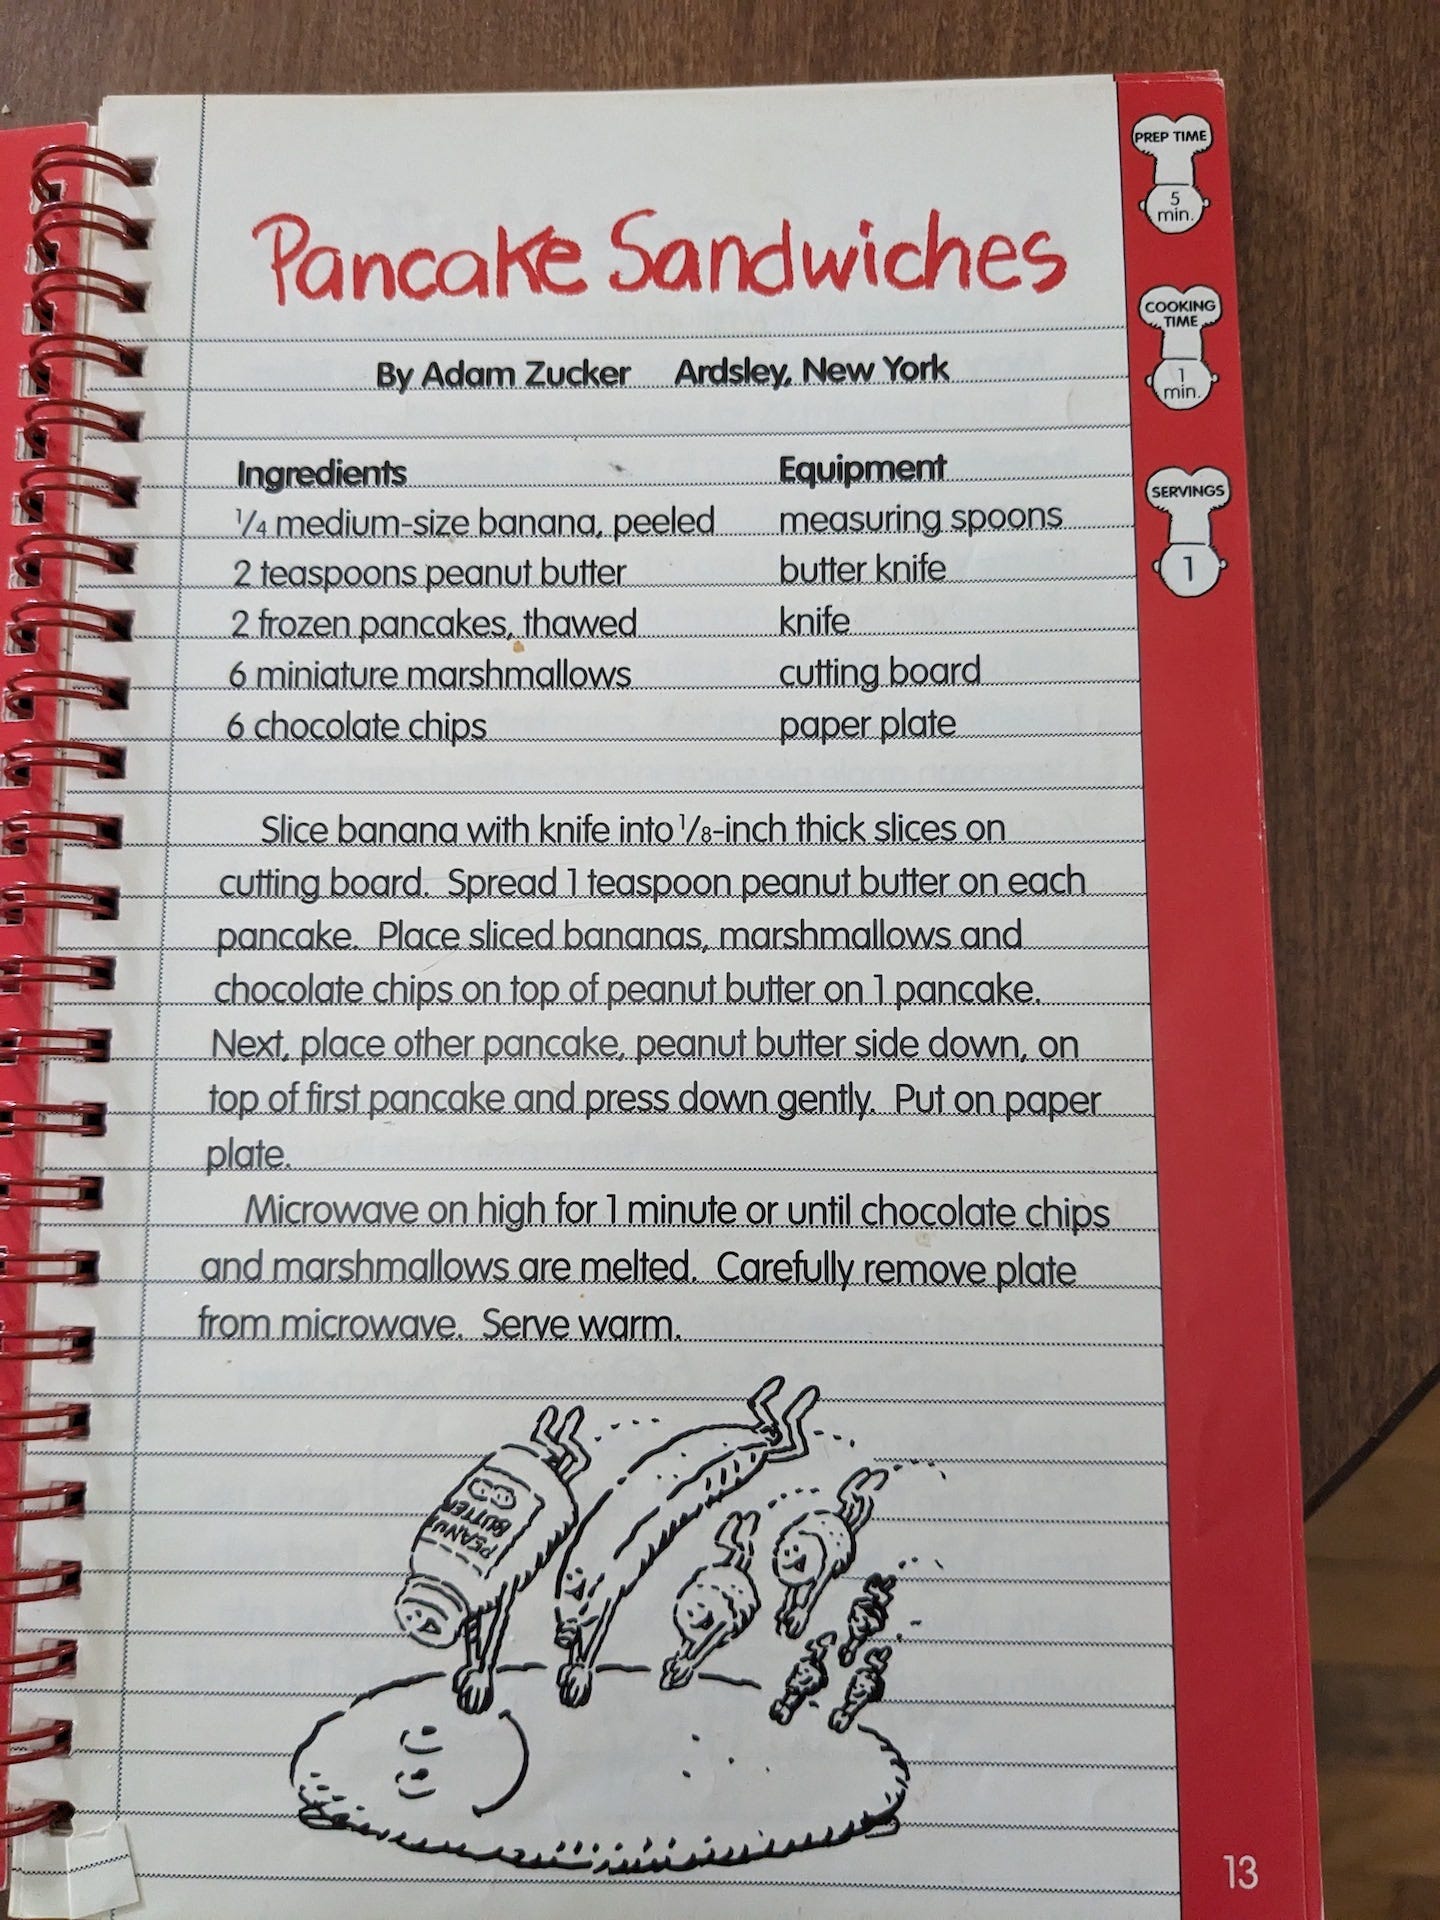 Pancake Sandwiches
By Adam Zucker Ardsley, New York
Ingredients
1/4 medium-size banana, peeled
2 teaspoons peanut butter
2 frozen pancakes, thawed
6 miniature marshmallows
6 chocolate chips
Equipment
measuring spoons
butter knife
knife
cutting board
paper plate
Slice banana with knife into 1/8-inch thick slices on
cutting board. Spread 1 teaspoon peanut butter on each
pancake. Place sliced bananas, marshmallows and
chocolate chips on top of peanut butter on 1 pancake.
Next, place other pancake, peanut butter side down, on
top of first pancake and press down gently. Put on paper
plate.
Microwave on high for 1 minute or until chocolate chips
and marshmallows are melted. Carefully remove plate
from microwave. Serve warm.
PREP TIME
5
min.
COOKING
TIME
1
min.
SERVINGS
1
PEANUT
BUTTER
13